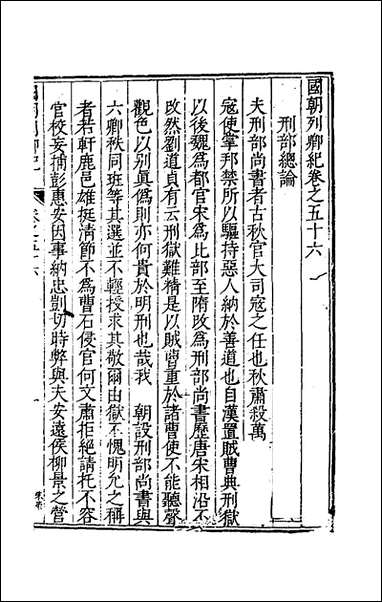 國朝列卿紀卷之五十六
刑部總論
夫刑部尚書者古秋官大司寇之任也秋肅殺萬
寇使掌邦禁所以驅持惡人納於善道也自漢置賊曹典刑獄
以後魏為都官宋為比部至隋改為刑部尚書歷唐宋相沿不
改然劉道貞有云刑獄難精是以賊曹重於諸曹使不能聽聲
觀色以別真偽則亦何貴於明刑也哉我 朝設刑部尚書與
六卿秩同班等其選並不輕授求其敬爾由獄不愧明允之稱
者若軒鹿邑雄挺清節不為曹石侵官何文肅拒絕請托不容
官校妄擒彭惠安因事納忠剴切時弊與夫安遠侯柳景之營
卷之五十六